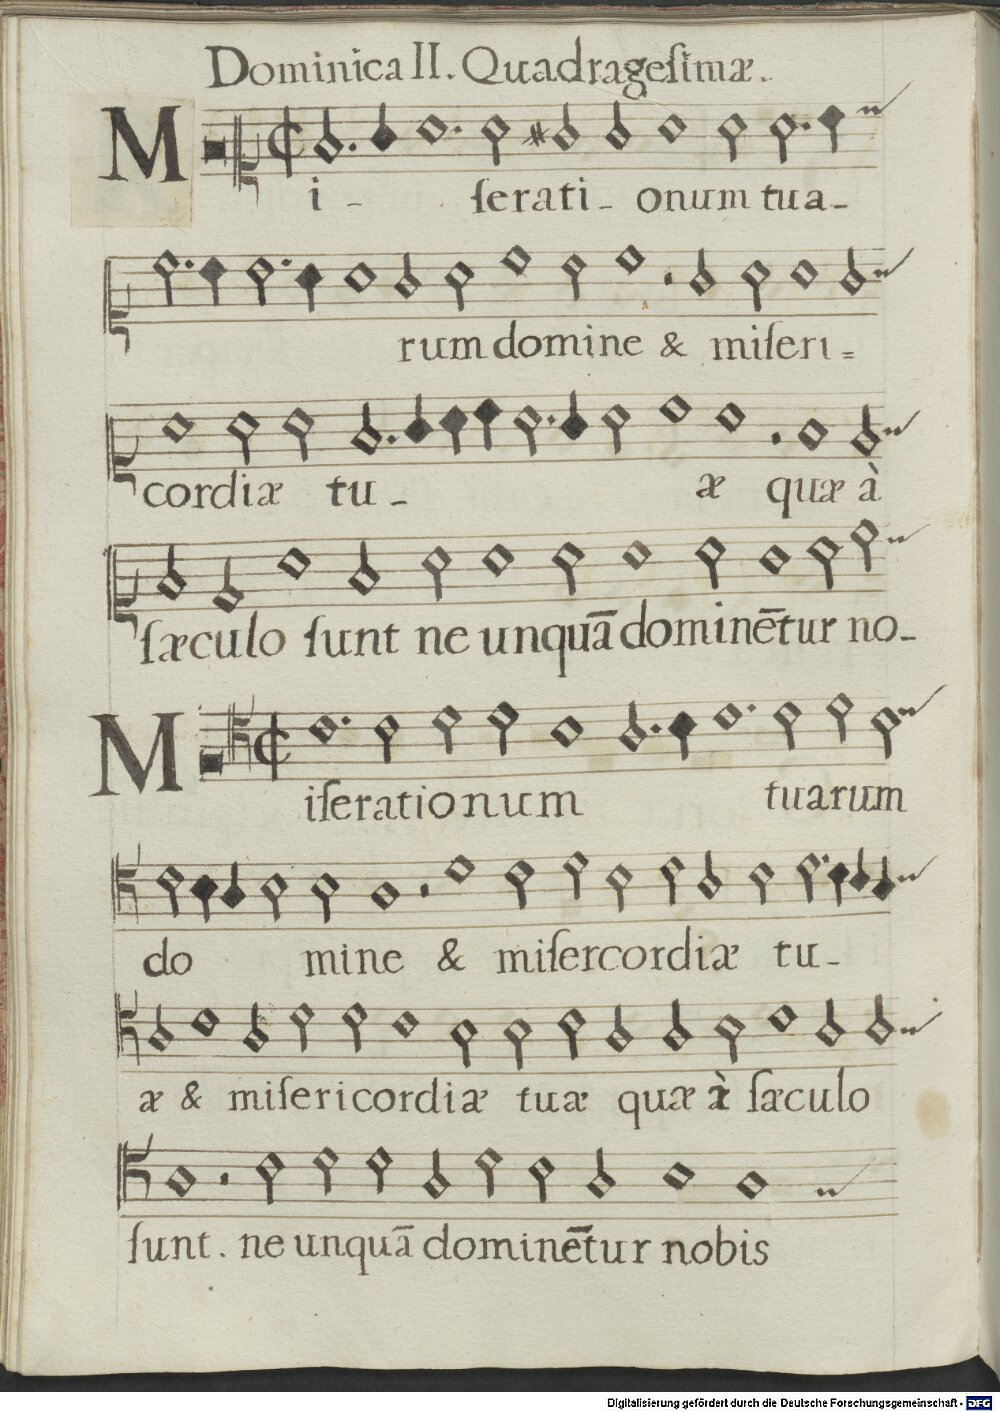 Dominica II. Quadrageſimæ.
Mi - ſerati - onum tua -
rum domine & miſeri =
cordiæ tu - æ quæ à
ſæculo ſunt ne unquā dominētur no -
Miſerationum tuarum
do mine & miſercordiæ tu -
æ & miſericordiæ tuæ quæ à ſæculo
ſunt. ne unquā dominētur nobis
Digitalisierung gefördert durch die Deutsche Forschungsgemeinschaft - DFG